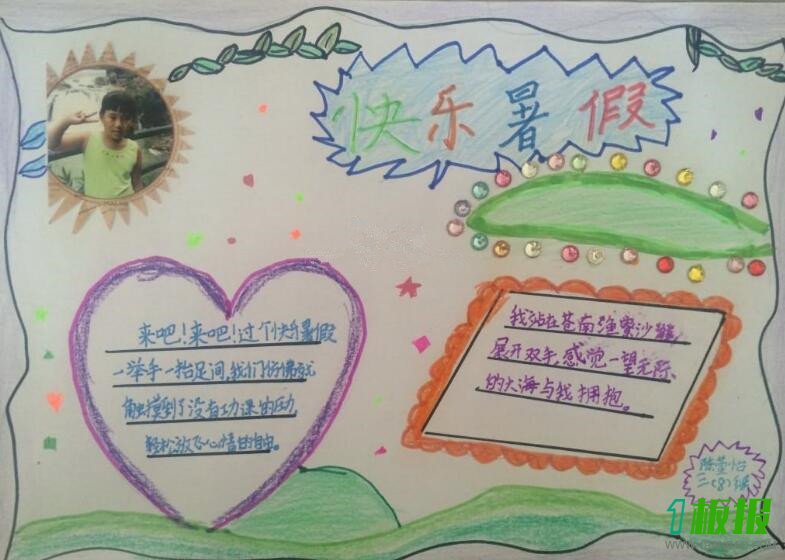 快乐暑假
来吧!来吧!过个快乐暑假
一举手一抬足间,我们仿佛就
触摸到了没有功课的压力
轻松放飞心情的自由。
我站在苍南渔寮沙滩,
展开双手,感觉一望无际
的大海与我拥抱。
二(8)班
1板报